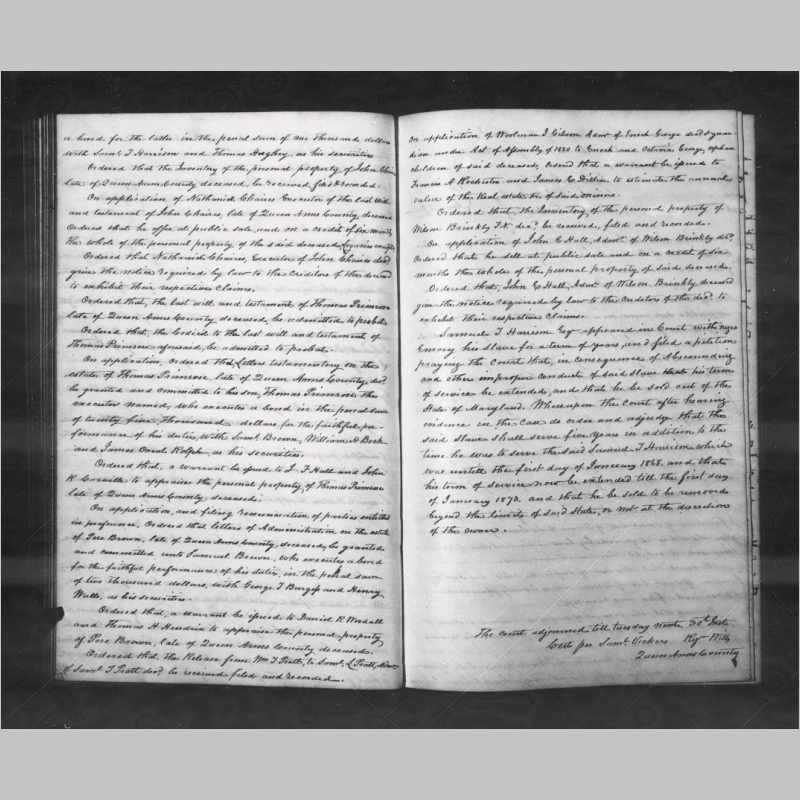 a bond for the latter in the penal sum of one thousand dollars
with Saml. T Harrison and Thomas Hughey as his securities
Ordered that the Inventory of the personal property of John Chaires
late of Queen Anns County deceased, be received filed & recorded.
On application of Nathaniel Chaires Executor of the last will
and testament of John Chaires, late of Queen Anns County, deceased
Ordered that he offer at public sale, and on a credit of six months
the whole of the personal property of the said deceased
Ordered that Nathaniel Chaires, Executor of John Chaires decd
gives the notice required by law to the Creditors of the deceased
to exhibit their respective claims.
Ordered that, the last will and testament of Thomas Primrose
late of Queen Anns County, deceased, be admitted to probat.
Ordered that, the Codicil to the last will and testament of
Thomas Primrose aforesaid, be admitted to probat.
On application, ordered that Letters testamentary on the
estate of Thomas Primrose late of Queen Anns County, decd.
be granted and committed to his son, Thomas Primrose the
executor named, who executes a bond in the penal sum
of twenty five Thousand dollars for the faithful per-
formance of his duties, with Saml. Brown, William H Beck
and James Ralph, as his securities.
Ordered that, a warrant be issued to J. F Hall and John
K to appraise the personal property of Thomas Primrose
late of Queen Anns County, deceased.
On application, and filing renunciation of parties entitled
in preference, Ordered that letters of Administration on the estate
of Pere Brown, late of Queen Anns County, deceased, be granted
and committed unto Samuel Brown, who executes a bond
for the faithful performance of his duties, in the penal sum
of two thousand dollars, with George T Burgess and Henry
Walls, as his securities.
Ordered that, a warrant be issued to Daniel R. Woodall
and Thomas H Hendrix to appraise the personal property
of Pere Brown, late of Queen Anns County deceased.
Ordered that, the Release from Wm T Pratt, to Saml. L Pratt, Admr.
of Saml. T Pratt decd. be received filed and recorded.
On application of Woolman J Gibson Admr. of Enoch George decd & guar-
dian under Act of Assembly of 1830 to Enoch and George, orphan
children of said deceased, Ordered that a warrant be issued to
Francis A Rochester and James C to estimate the annual
value of the Real estate &c of said minors.
Ordered that, the Inventory of the personal property of
Wilson Brinkly F. N. decd. be received, filed and recorded.
On application of John C Hall, Admr. of Wilson Brinkly decd.
Ordered that he sell at public sale and on a credit of six
months the whole of the personal property of said deceased.
Ordered that, John C Hall, Admr of Wilson Brinkly, deceased
give the notice required by law to the Creditors of the decd. to
exhibit their respective Claims.
Samuel T Harrison Esq appeared in Court with negro
Emory his slave for a term of years, and filed a petition
praying the Court that, in consequence of Absconding
and other improper conduct of said slave that his term
of service be extended, and that he be sold out of the
State of Maryland. Whereupon the Court after hearing
evidence in the Case do order and adjudge that the
said Slave shall serve five years in addition to the
time he was to serve the said Samuel T Harrison which
was untill the first day of January 1868. and that
his term of service now be extended till the first day
of January 1873. and that he be sold to be removed
beyond the limits of said State, or not at the discretion
of the owner.
The Court adjourned till tuesday next 30th Inst.
Test per Saml. Vickers Regr Wills
Queen Anns County